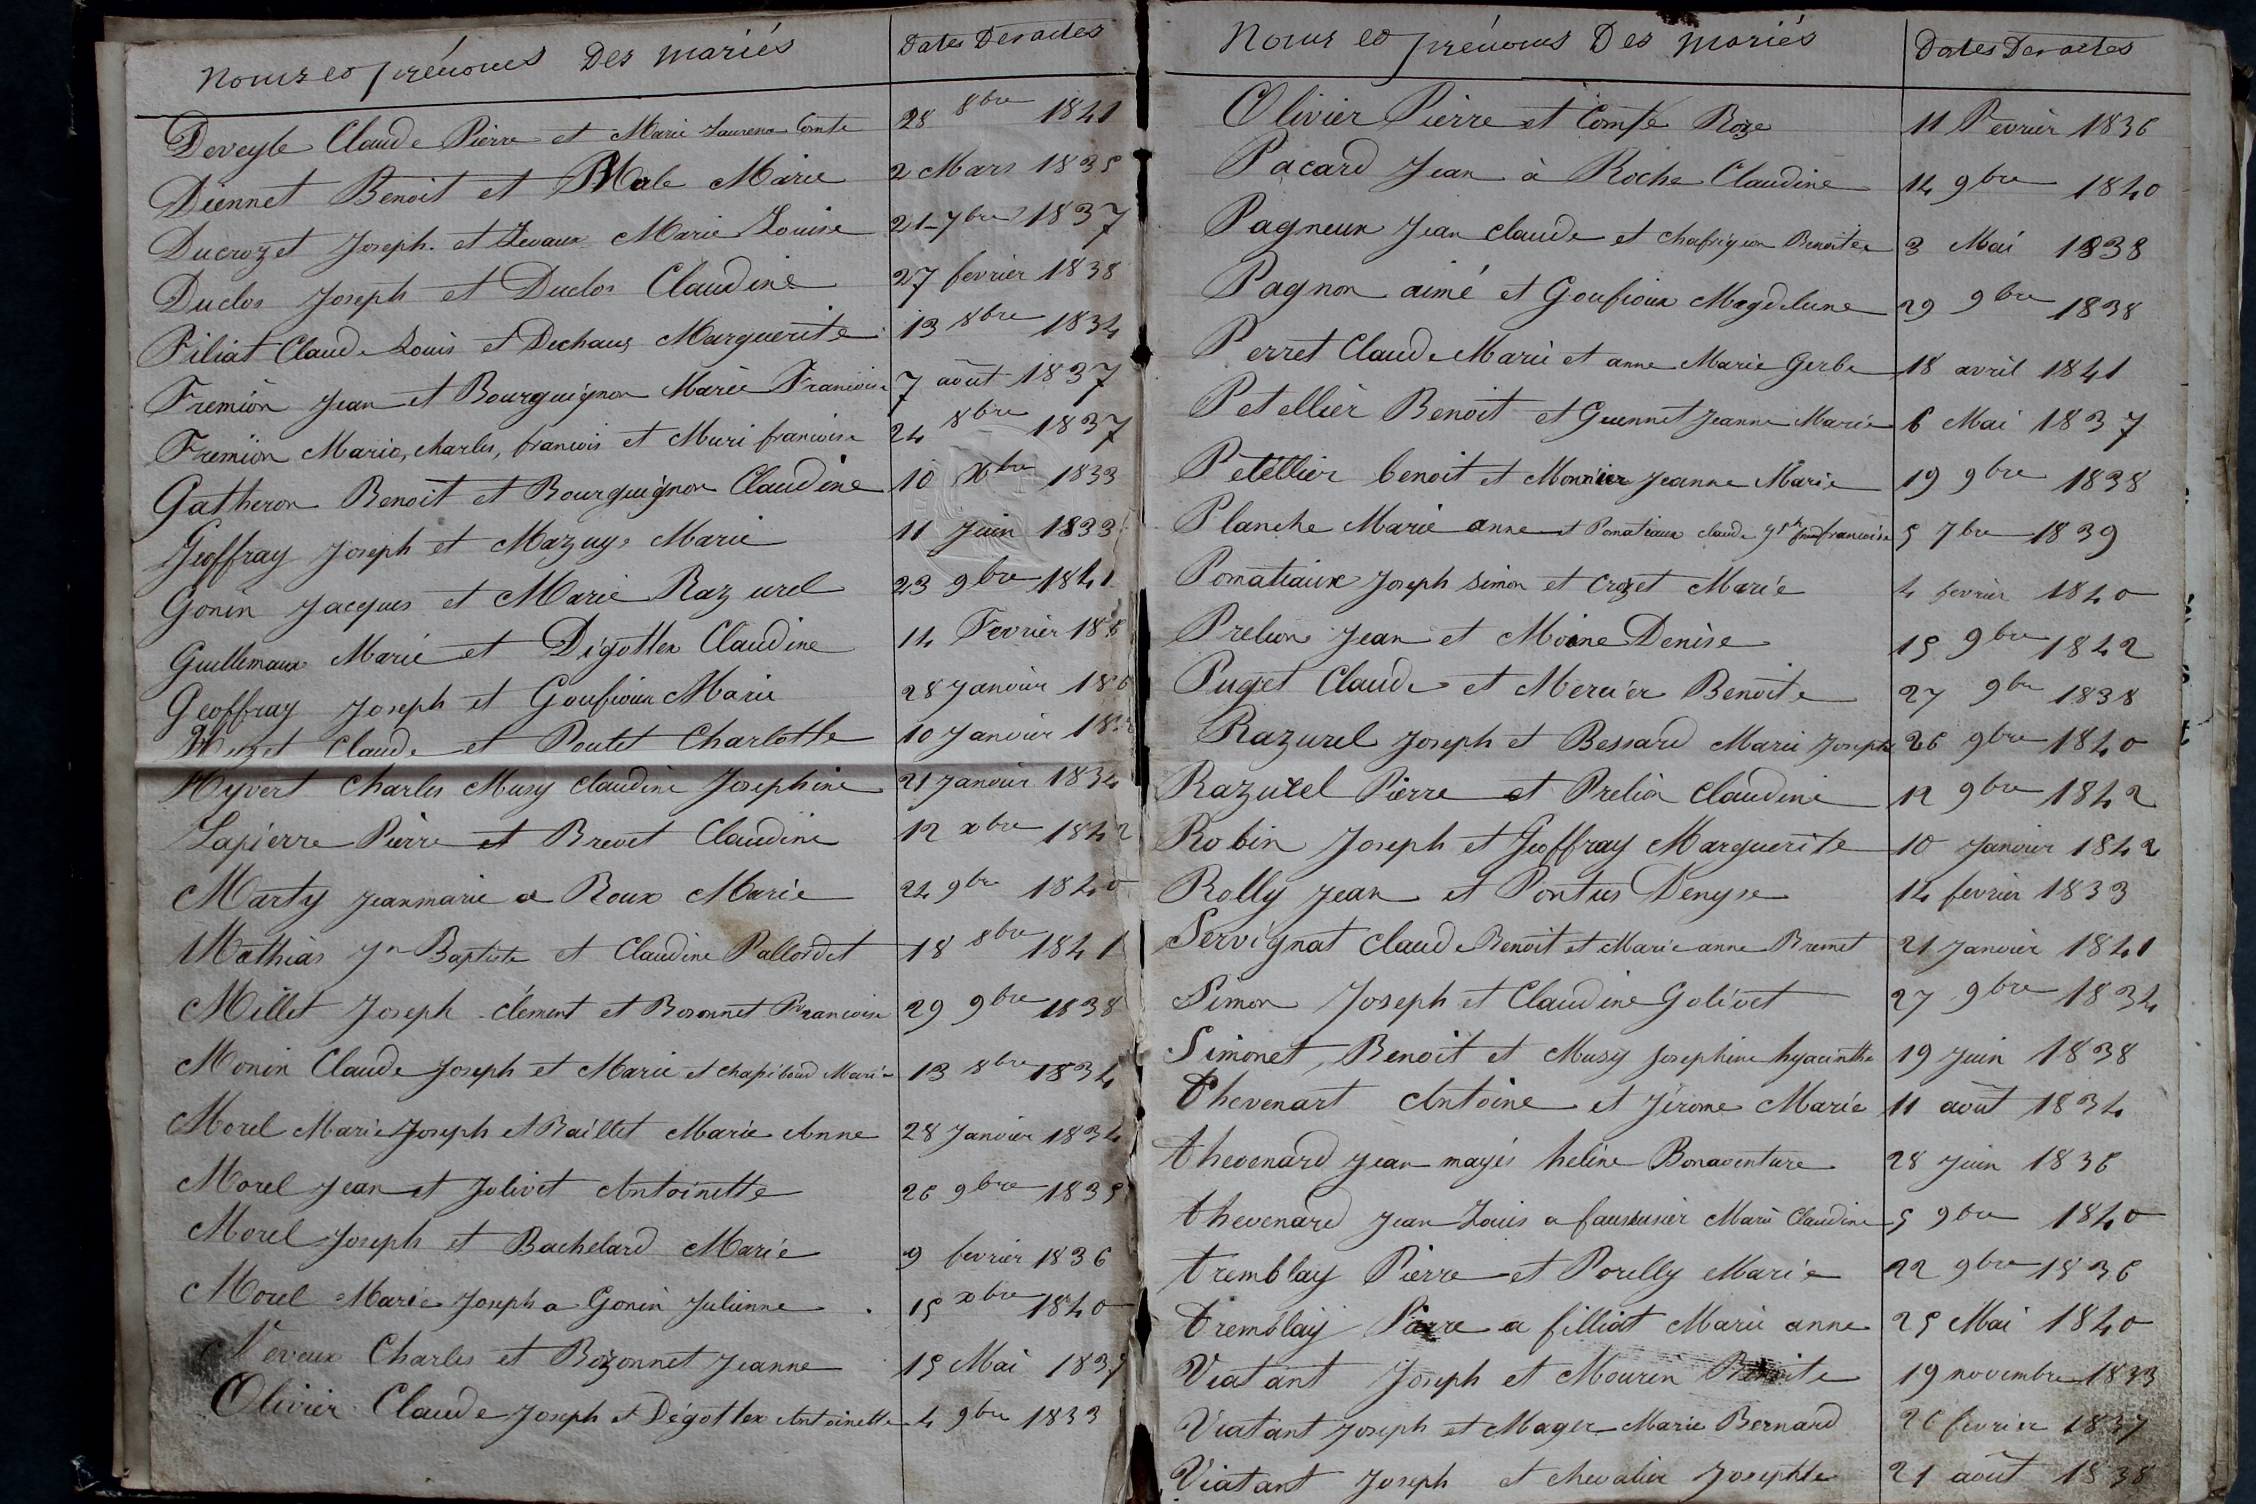 Noms et prénoms Des mariés Dates Des actes
Deveyle Claude Pierre et Marie Laurence Comte 28 8bre 1841
Diennet Benoit et Mole Marie 2 Mars 1835
Ducrozet Joseph et Levaux Marie Louise 21 7bre 1837
Duclos Joseph et Duclos Claudine 27 fevrier 1838
Filiat Claude Louis et Dechaux Marguerite 13 8bre 1834
Fremion Jean et Bourguignon Marie Francoise 7 août 1837
Fremion Marie, charles, francois et Muri francoise 24 8bre 1837
Gatheron Benoit et Bourguignon Claudine 10 Xbre 1833
Geoffray Joseph et Mazuy Marie 11 Juin 1833
Gonin Jacques et Marie Razurel 23 9bre 1841
Guillemaux Marie et Dégottex Claudine 14 Fevrier
Geoffray Joseph et Goufioux Marie 28 Janvier
Claude et Poutet Charlotte 10 Janvier
Hyvert Charles Musy Claudine Josephine 21 Janvier 1834
Lapierre Pierre et Brevet Claudine 12 xbre 1842
Marty Jeanmarie a Roux Marie 24 9bre 1840
Mathias Jn Baptiste et Claudine Pallordet 18 8bre 1841
Millet Joseph clément et Bozonnet Francoise 29 9bre 1838
Monin Claude Joseph et Marie et Chapiboud Marie 13 8bre 1834
Morel Marie Joseph et Baillet Marie Anne 28 Janvier 1834
Morel Jean et Jolivet Antoinette 26 9bre 1835
Morel Joseph et Bachelard Marie 9 fevrier 1836
Morel Marie Joseph a Gonin Julienne 15 xbre 1840
Neveux Charles et Bozonnet Jeanne 15 Mai 1837
Olivier Claude Joseph et Dégottex Antoinette 4 9bre 1833
Noms et prénoms Des Mariés Dates Des actes
Olivier Pierre et Comte Roze 11 Fevrier 1836
Pacard Jean à Roche Claudine 14 9bre 1840
Pagneux Jean claude et chafrigeon Benoite 3 Mai 1838
Pagnon aimé et Goufioux Magdeleine 29 9bre 1838
Perret Claude Marie et anne Marie Gerbe 18 avril 1841
Petellier Benoit et Guennet Jeanne Marie 6 Mai 1837
Petellier benoit et Monnier Jeanne Marie 19 9bre 1838
Planche Marie anne et Pomatiaux claude Jph francoise 5 7bre 1839
Pomatiaux Joseph Simon et Crozet Marie 4 fevrier 1840
Prelion Jean et Moine Denise 15 9bre 1842
Puget Claude et Mercier Benoite 27 9bre 1838
Razurel Joseph et Bessard Marie Josephe 26 9bre 1840
Razurel Pierre et Prelion Claudine 12 9bre 1842
Robin Joseph et Geoffray Marguerite 10 Janvier 1842
Rolly Jean et Pontus Denyse 14 fevrier 1833
Servignat Claude Benoit et Marie anne Brunet 21 Janvier 1841
Simon Joseph et Claudine Golivet 27 9bre 1834
Simonet, Benoit et Musy Josephine hyacinthe 19 Juin 1838
thevenart Antoine et Jérome Marie 11 août 1834
thevenard Jean mayés heline Bonaventure 28 Juin 1836
thevenard Jean Louis a faussurier Marie Claudine 5 9bre 1840
tremblay Pierre et Porelly Marie 22 9bre 1836
tremblay Pierre a filliat Marie anne 25 Mai 1840
Viatant Joseph et Mourin Benoite 19 novembre 1833
Viatant Joseph et Mager Marie Bernard 26 fevrier 1837
Viatant Joseph et chevalier Josephte 21 août 1838